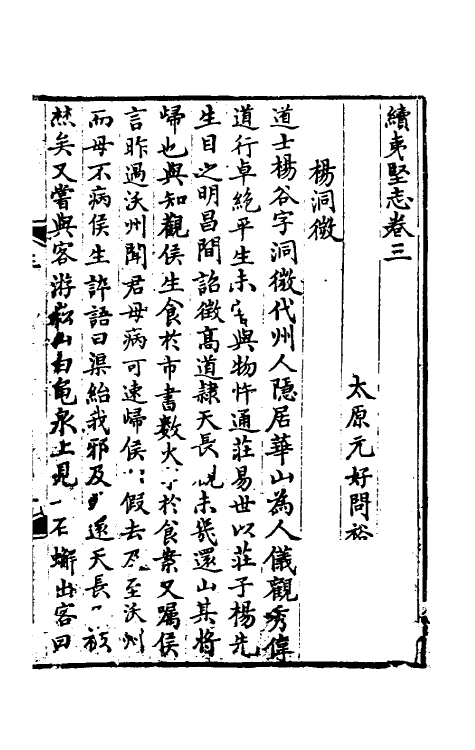 續夷堅志卷三
太原元好問裕
楊洞微
道士楊谷字洞微代州人隱居華山為人儀觀秀偉
道行卓絶平生未嘗與物忤通莊易世以莊子楊先
生目之明昌間詔徵髙道隷天長觀未幾還山其將
歸也與知觀侯生食於市書數火字於食案又嘱侯
言昨過沃州聞君母病可速歸侯假去至沃州
而母不病侯生誶語曰渠紿我邪及還天長
然矣又嘗與客游嵩山白龜泉上見一石蟹出客曰